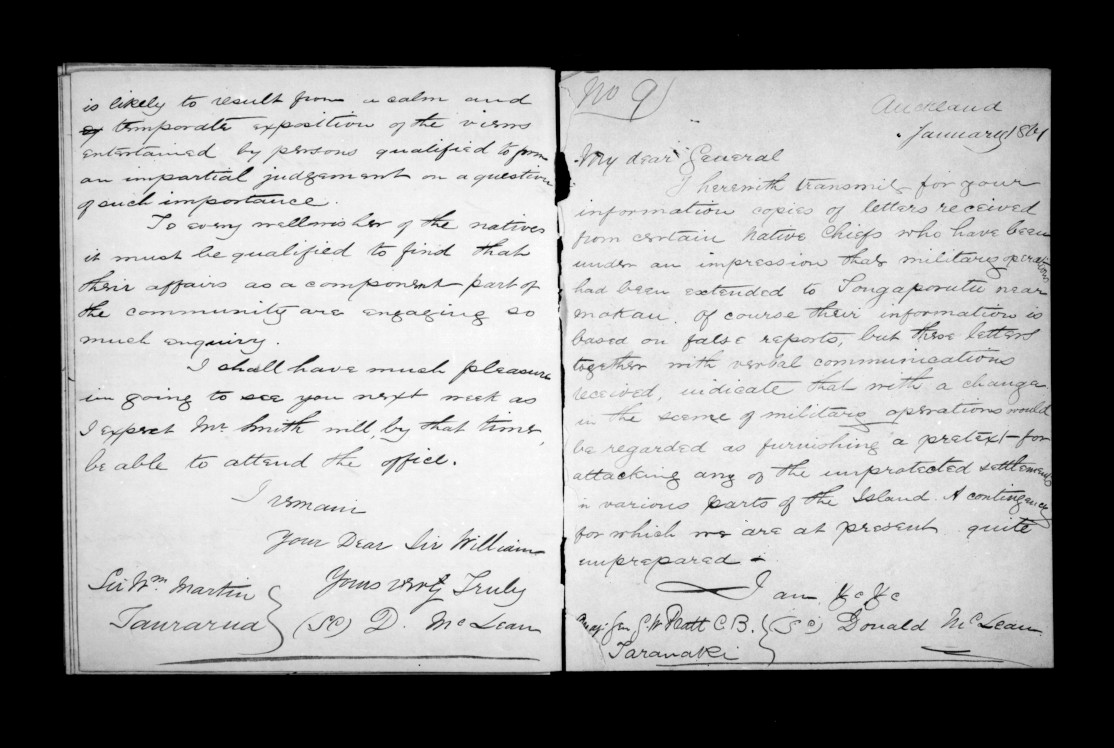 is likely to result from a calm and
temporate exposition of the views
entertained by persons qualified to form
an impartial judgement on a question
of such importance.
To every wellwisher of the natives
it must be qualified to find that
their affairs as a component part of
the community are engaging so
much enquiry.
I shall have much pleasure
in going to see you next week as
I expect Mr Smith will, by that time,
be able to attend the office.
I remain
Your Dear Sir William
Yours very Truly
Sir Wm. Martin
Taurarua
(Sd) D. McLean
No 9)
Auckland
January 1861
My dear General
I herewith transmit for your
information copies of letters received
from certain Native Chiefs who have been
under an impression that military operations
had been extended to Tongaporutu near
mokau. Of course their information is
based on false reports, but these letters
together with verbal communications
received, indicate that with a change
in the scene of military operations would
be regarded as furnishing a pretext for
attacking any of the unprotected settlements
in various parts of the Island. A contingency
for which we are at present quite
unprepared
I am &c &c
Maj. Gen. Pratt C.B.
Taranaki
(Sd) Donald McLean